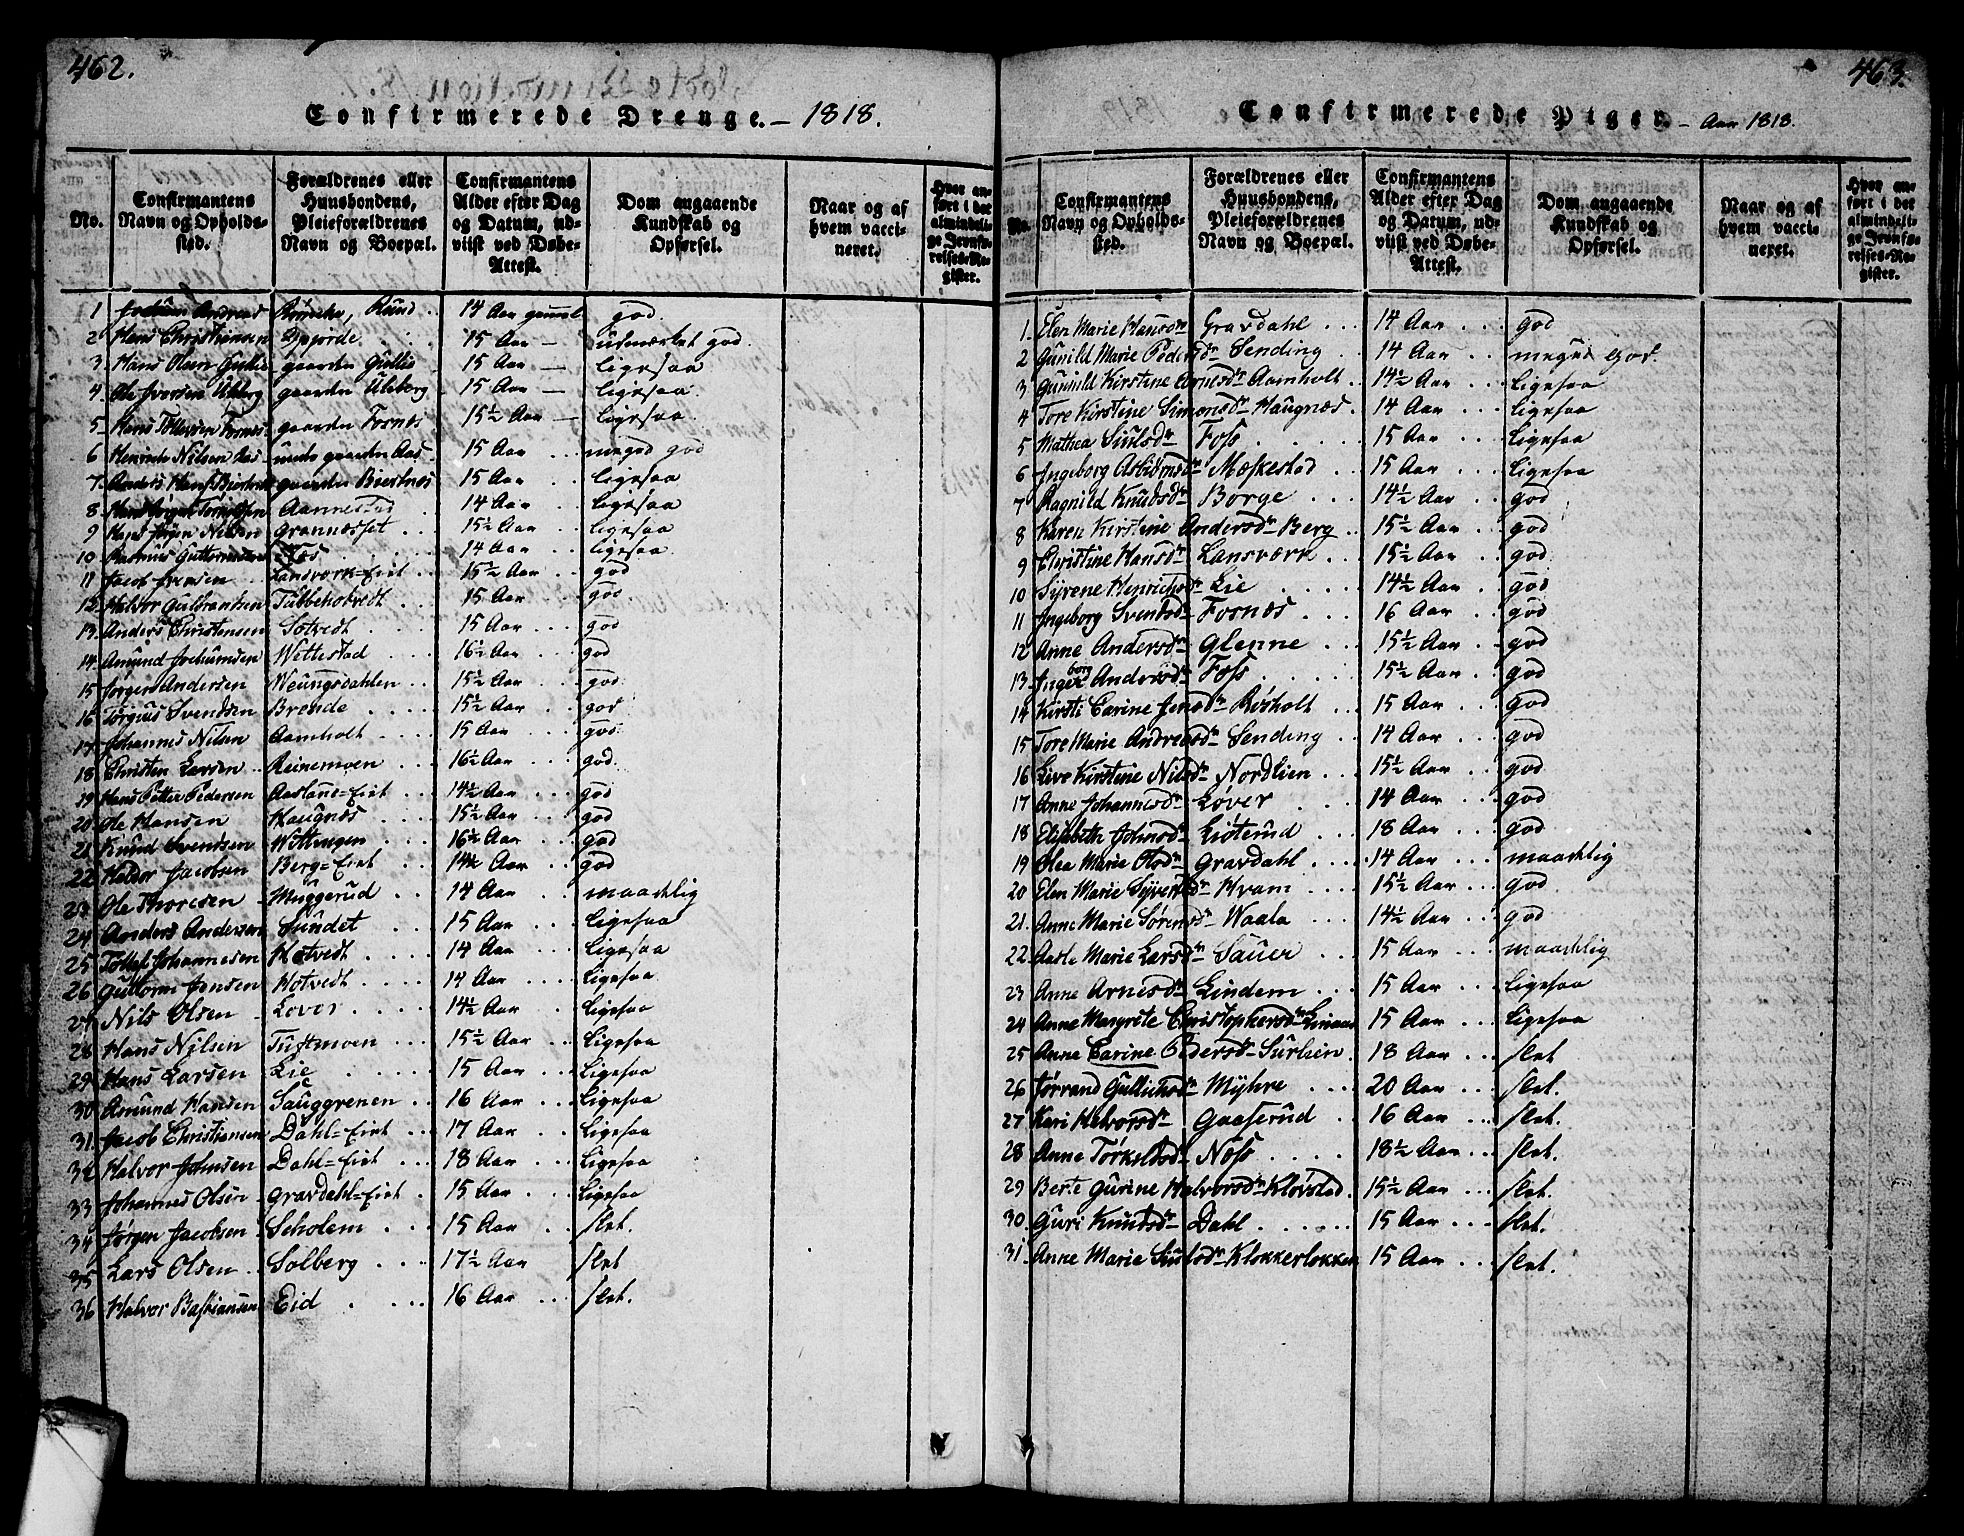 462.
Confirmerede Drenge. — 1818.
No.
Confirmantens Navn og Opholdssted.
Forældrenes eller Huusbondens, Pleieforældrenes Navn og Boepæl.
Confirmantens Alder efter Dag og Datum, udviist ved Døbe-Attest.
Dom angaaende Kundskab og Opførsel.
Naar og af hvem vaccineret.
Hvor anført i det almindelige Jevnførelses-Register.
1 Jochum Andreas Rund. 14 Aar gammel god.
2 Hans Christiansen 15 Aar — udmærket god.
3. Hans Olsen Gullie gaarden Gullie 15 Aar — ligesaa
4. Ole Iversen Uleberg gaarden Uleberg 15 Aar — ligesaa.
5 Hans Tollefsen Fosnes gaarden Fosnes 15½ Aar — ligesaa.
6 Henrich Nilsen Aas unde gaarden Aas. 15 Aar . . meged god
7. Anders Hans: gaarden 15 Aar . . ligesaa
8 Aannestad . 14 Aar . . . ligesaa
9 Hans Jørgen Nilsen Grannesset . . 15½ Aar . . . ligesaa
10 Rasmus Guttormsen 14 Aar . . . ligesaa.
11 Jacob Iversen Lansværk=Eiet . . 15½ Aar . . . god
12. Halvor Guldbrandsen Tubbehotvedt . 15 Aar . . . god
13. Anders Christensen Sotvedt . . . 15 Aar . . . god
14 Amund Jochumsen Wettestad . . . 16½ Aar . . . god
15 Jørgen Andersen Weungsdahlen . . 15½ Aar . . . god.
16 Torgius Svendsen Brende . . . . 15½ Aar . . . god
17 Johannes Nilsen Aamholt . . . 15 Aar . . . god.
18 Christen Larsen Reinemoen . . 16½ Aar . . . god.
19 Hans Petter Pedersen Aasland=Eiet . . 14½ Aar . . . god
20 Ole Hansen Haugnæs . . . 15½ Aar . . . god
21 Knud Svendsen Wittingen . . . 16½ Aar . . god
22 Halvor Jacobsen Berg=Eiet . . . 14½ Aar . . god
23 Ole Thoresen Muggerud . . 14 Aar . . maadelig
24 Anders Andersen Sundet . . 15 Aar . . . ligesaa
25 Tollef Johannesen Hotvedt . . . . 14 Aar . . . ligesaa
26 Guttorm Jensen Hotvedt . . . . 14 Aar . . . ligesaa
27 Nils Olsen Lover . . . . 14½ Aar . . . ligesaa
28 Hans Nilsen Tuftmoen . . . 15½ Aar . . . ligesaa
29 Hans Larsen Lie . . . . . 15 Aar . . . ligesaa
30 Amund Hansen Sauggrenen . . . 16 Aar . . . ligesaa
31. Jacob Christiansen Dahl=Eiet . . . 17 Aar . . . ligesaa
32 Halvor Johnsen Dahl=Eiet . . . 18 Aar . . . ligesaa
33 Johannes Olsen Gravdahl=Eiet . 15 Aar . . . ligesaa
34 Jørgen Jacobsen Scholem . . . 15 Aar . . . slet.
35 Lars Olsen Solberg . . . . 17½ Aar . . . slet
36 Halvor Bastiansen Eid . . . . 16 Aar . . . slet.
463.
Confirmerede Piger. — Aar 1818.
No.
Confirmantens Navn og Opholdssted.
Forældrenes eller Huusbondens, Pleieforældrenes Navn og Boepæl.
Confirmantens Alder efter Dag og Datum, udviist ved Døbe-Attest.
Dom angaaende Kundskab og Opførsel.
Naar og af hvem vaccineret.
Hvor anført i det almindelige Jevnførelses-Register.
1. Elen Marie Hansdr Gravdahl . . . 14 Aar . . . god
2 Gunild Marie Pedersdr Sending . . 14 Aar . . . meged god.
3 Gunnild Kirstine Arnesdr Aamholt . . 14½ Aar . . . ligesaa
4 Tore Kirstine Simonsdr Haugnæs . 14 Aar . . . ligesaa
5 Mathea Siulsdr Foss . . . . . 15 Aar . . . ligesaa
6 Ingeborg Asbiørnsdr Mækestad . . 15 Aar . . . ligesaa
7 Ragnild Knudsdr Borge . . . 14½ Aar . . . god
8 Karen Kirstine Andersdr Berg . . 15½ Aar . . . god
9 Christine Hansdr Lansværk . . . 15½ Aar . . . god.
10 Syrene Henrichsdr Lie . . . . . 14½ Aar . . god
11 Ingeborg Svendsdr Fosnæs . . . 16 Aar . . . god
12 Anne Andersdr Glenne . . . 15½ Aar . . . god
13. Ingeborg Andersdr Foss . . . . . 15½ Aar . . . god
14 Kirsti Carine Jensdr Røsholt . . . 15 Aar . . . god
15 Tore Marie Andreasdr Sending . . . 14 Aar . . . god
16 Live Kirstine Nilsdr Nordlien . . . 15½ Aar . . . god
17 Anne Johannesdr Løver . . . 14 Aar . . . god
18 Elisabeth Johnsdr Liøterud . . . 18 Aar . . . god
19 Olea Marie Olsdr Gravdahl . . . . 14 Aar . . . maadelig
20 Elen Marie Syversdr Kvam . . . . 15½ Aar . . . god.
21. Anne Marie Sørensdr Waala . . . 14½ Aar . . . god
22. Aasle Marie Larsdr Sauer . . . 15 Aar . . . maadelig
23 Anne Arnesdr Lindem . . . 15 Aar . . . ligesaa
24 Anne Margrete Christophersdr 15 Aar . . . ligesaa
25 Anne Carine Pedersdr 18 Aar . . . slet
26 Jørrand Gullichsdr Myhre . . . . 20 Aar . . . slet.
27 Kari Halvorsdr Gaaserud . . . 16 Aar . . . slet.
28 Anne Torkeldsdr Foss . . . . . 18½ Aar . . . slet.
29 Berte Gurine Halvorsdr Kløvstad . 15½ Aar . . . slet.
30. Guri Knudsdr Dahl . . . . . . 15 Aar . . . slet.
31. Anne Marie Siulsdr Klokkerlokken 15 Aar . . . slet.